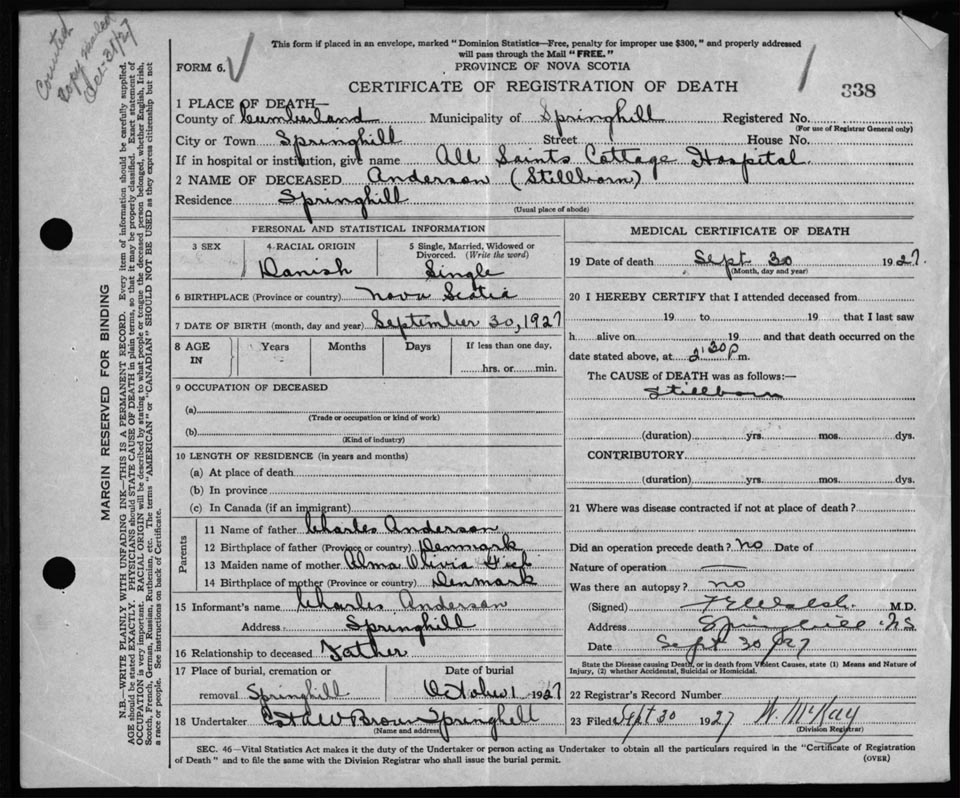 Counted
Copy mailed
Dec-31/27
This form if placed in an envelope, marked "Dominion Statistics—Free, penalty for improper use $300," and properly addressed
will pass through the Mail "FREE."
FORM 6.
PROVINCE OF NOVA SCOTIA
CERTIFICATE OF REGISTRATION OF DEATH
338
1 PLACE OF DEATH—
County of Cumberland Municipality of Springhill Registered No.
(For use of Registrar General only)
City or Town Springhill Street House No.
If in hospital or institution, give name All Saints Cottage Hospital
2 NAME OF DECEASED Anderson (Stillborn)
Residence Springhill
(Usual place of abode)
PERSONAL AND STATISTICAL INFORMATION
3 SEX 4 RACIAL ORIGIN 5 Single, Married, Widowed or
Divorced. (Write the word)
Danish Single
6 BIRTHPLACE (Province or country) Nova Scotia
7 DATE OF BIRTH (month, day and year) September 30, 1927
8 AGE IN Years Months Days If less than one day,
hrs. or min.
9 OCCUPATION OF DECEASED
(a)
(Trade or occupation or kind of work)
(b)
(Kind of industry)
10 LENGTH OF RESIDENCE (in years and months)
(a) At place of death
(b) In province
(c) In Canada (if an immigrant)
Parents
11 Name of father Charles Anderson
12 Birthplace of father (Province or country) Denmark
13 Maiden name of mother Alma Olivia
14 Birthplace of mother (Province or country) Denmark
15 Informant's name Charles Anderson
Address Springhill
16 Relationship to deceased Father
17 Place of burial, cremation or Date of burial
removal Springhill October 1 1927
18 Undertaker Brown Springhill
(Name and address)
MEDICAL CERTIFICATE OF DEATH
19 Date of death Sept. 30 1927.
(Month, day and year)
20 I HEREBY CERTIFY that I attended deceased from
19 to 19 that I last saw
h alive on 19 and that death occurred on the
date stated above, at 2:30 p m.
The CAUSE of DEATH was as follows:—
Stillborn
(duration) yrs. mos. dys.
CONTRIBUTORY
(duration) yrs. mos. dys.
21 Where was disease contracted if not at place of death?
Did an operation precede death? no Date of
Nature of operation —
Was there an autopsy? no
(Signed) Walsh. M.D.
Address Springhill NS
Date Sept 30/27
State the Disease causing Death, or in death from Violent Causes, state (1) Means and Nature of
Injury, (2) whether Accidental, Suicidal or Homicidal.
22 Registrar's Record Number
23 Filed Sept 30 1927 W. McKay
(Division Registrar)
SEC. 46—Vital Statistics Act makes it the duty of the Undertaker or person acting as Undertaker to obtain all the particulars required in the "Certificate of Registration
of Death" and to file the same with the Division Registrar who shall issue the burial permit.
(OVER)
MARGIN RESERVED FOR BINDING
N.B.—WRITE PLAINLY WITH UNFADING INK—THIS IS A PERMANENT RECORD. Every item of information should be carefully supplied.
AGE should be stated EXACTLY. PHYSICIANS should STATE CAUSE OF DEATH in plain terms, so that it may be properly classified. Exact statement of
OCCUPATION is very important. RACIAL ORIGIN will be described by stating to what people or tongue the deceased person belonged, whether English, Irish,
Scotch, French, German, Russian, Ruthenian, etc. The terms "AMERICAN" or "CANADIAN" SHOULD NOT BE USED as they express citizenship but not
a race or people. See instructions on back of Certificate.